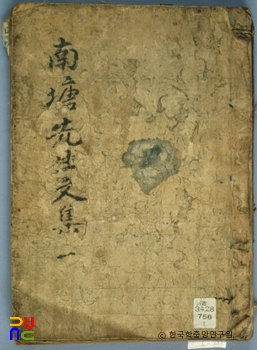 南塘先生文集 一
3428
758
1
© 한국학중앙연구원